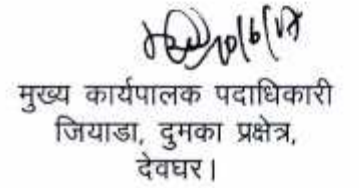 20/6/17
मुख्य कार्यपालक पदाधिकारी
जियाडा, दुमका प्रक्षेत्र,
देवघर।